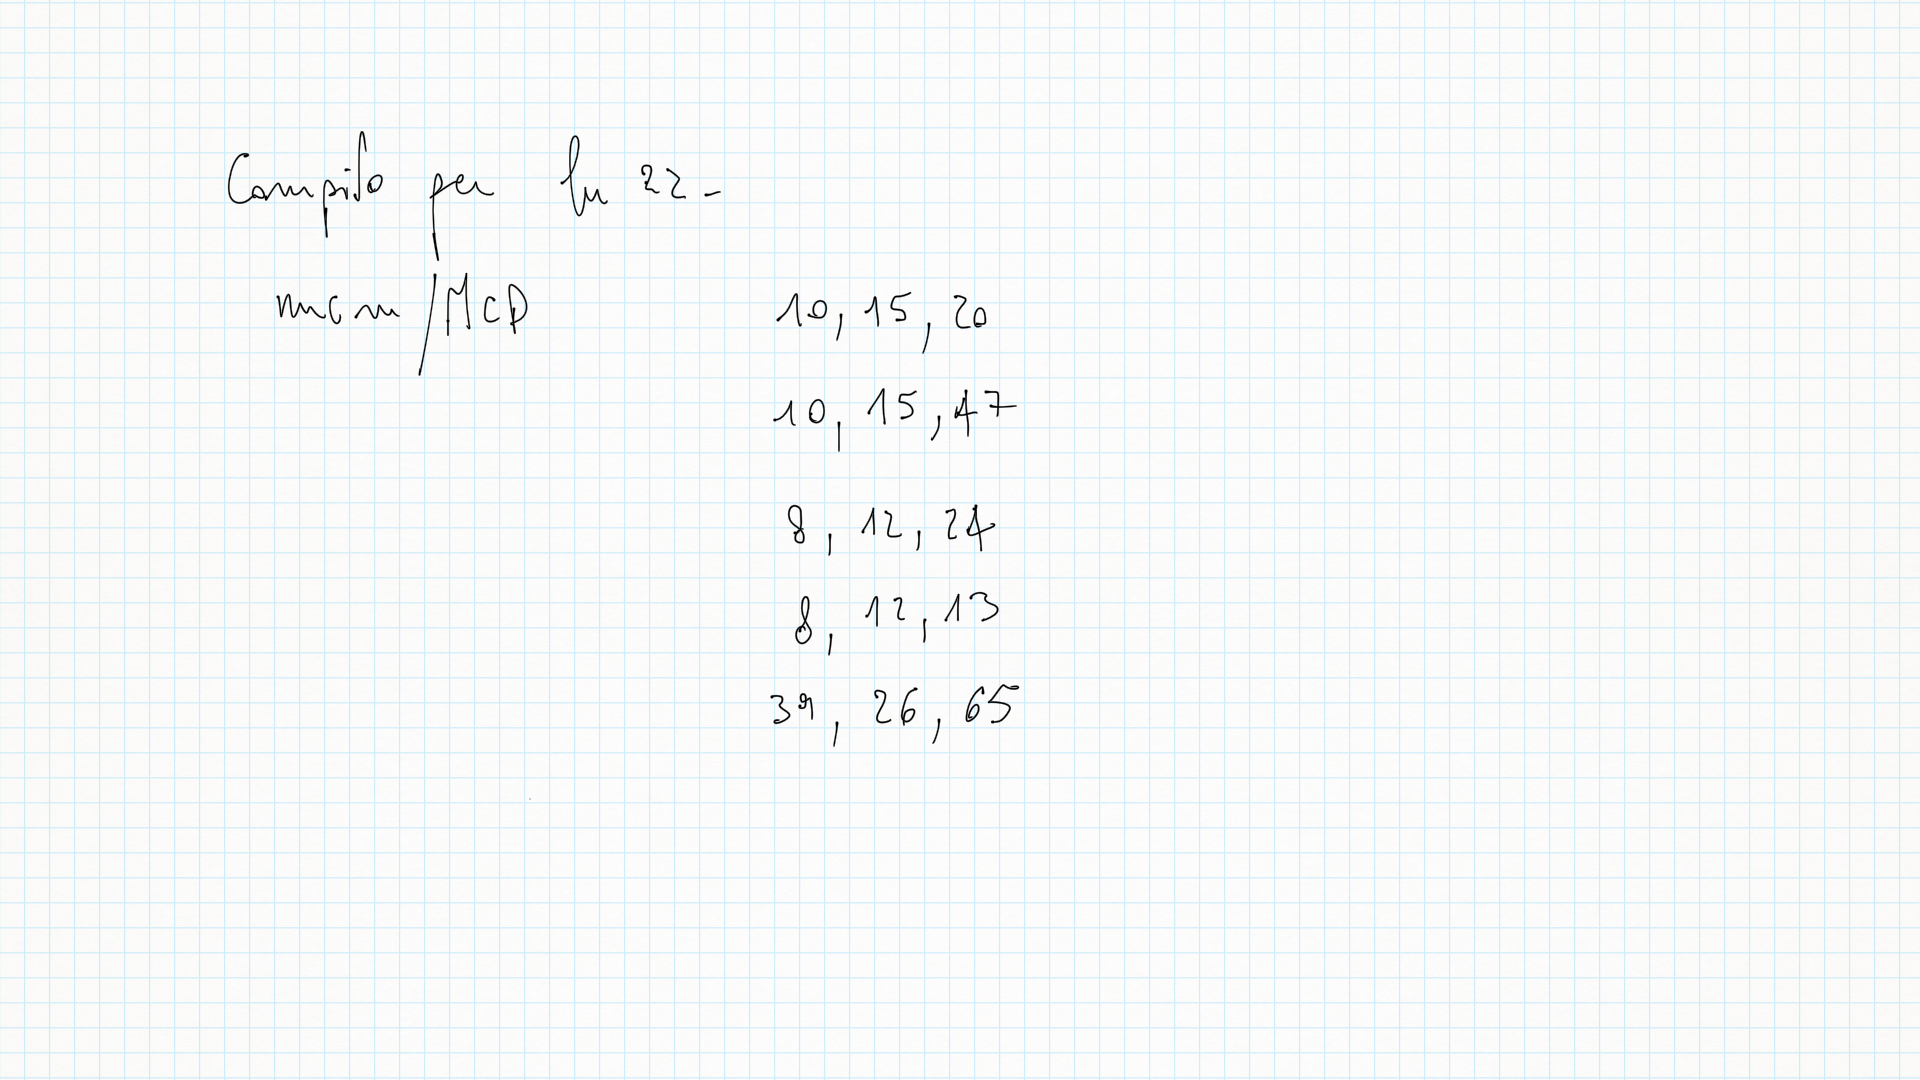 Compito per lu 22-
mcm/MCD
10, 15, 20
10, 15, 47
8, 12, 24
8, 12, 13
39, 26, 65